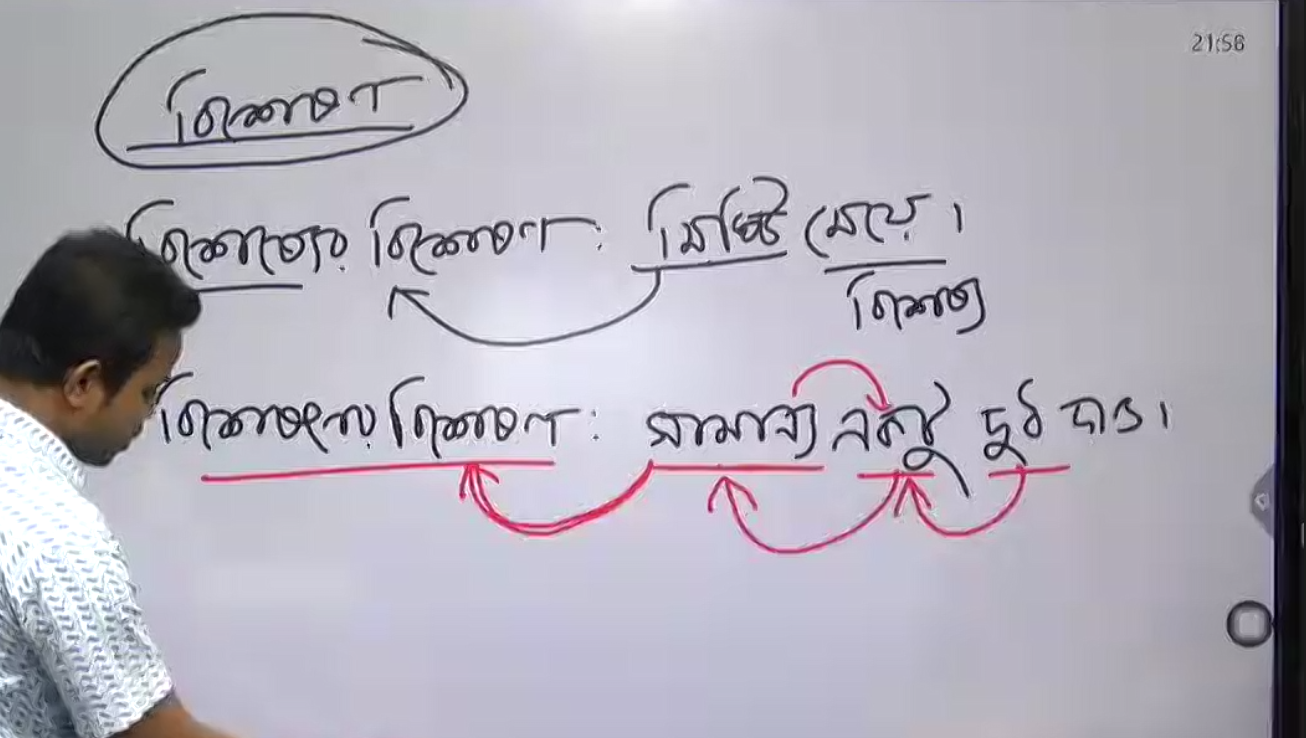 21:56
বিশেষণ
বিশেষ্যের বিশেষণ: মিষ্টি মেয়ে।
বিশেষ্য
বিশেষণের বিশেষণ: সামান্য একটু দুধ দাও।